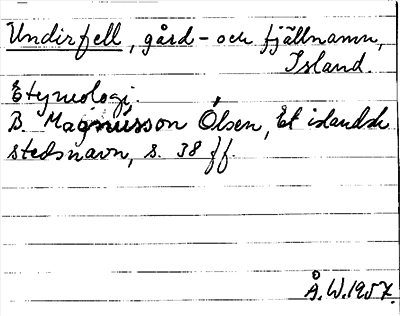 Undirfell, gård- och fjällnamn,
Island.
Etymologi.
B. Magnússon Ólsen, Et islandsk
stedsnavn, s. 38 ff.
Å.W.1957.